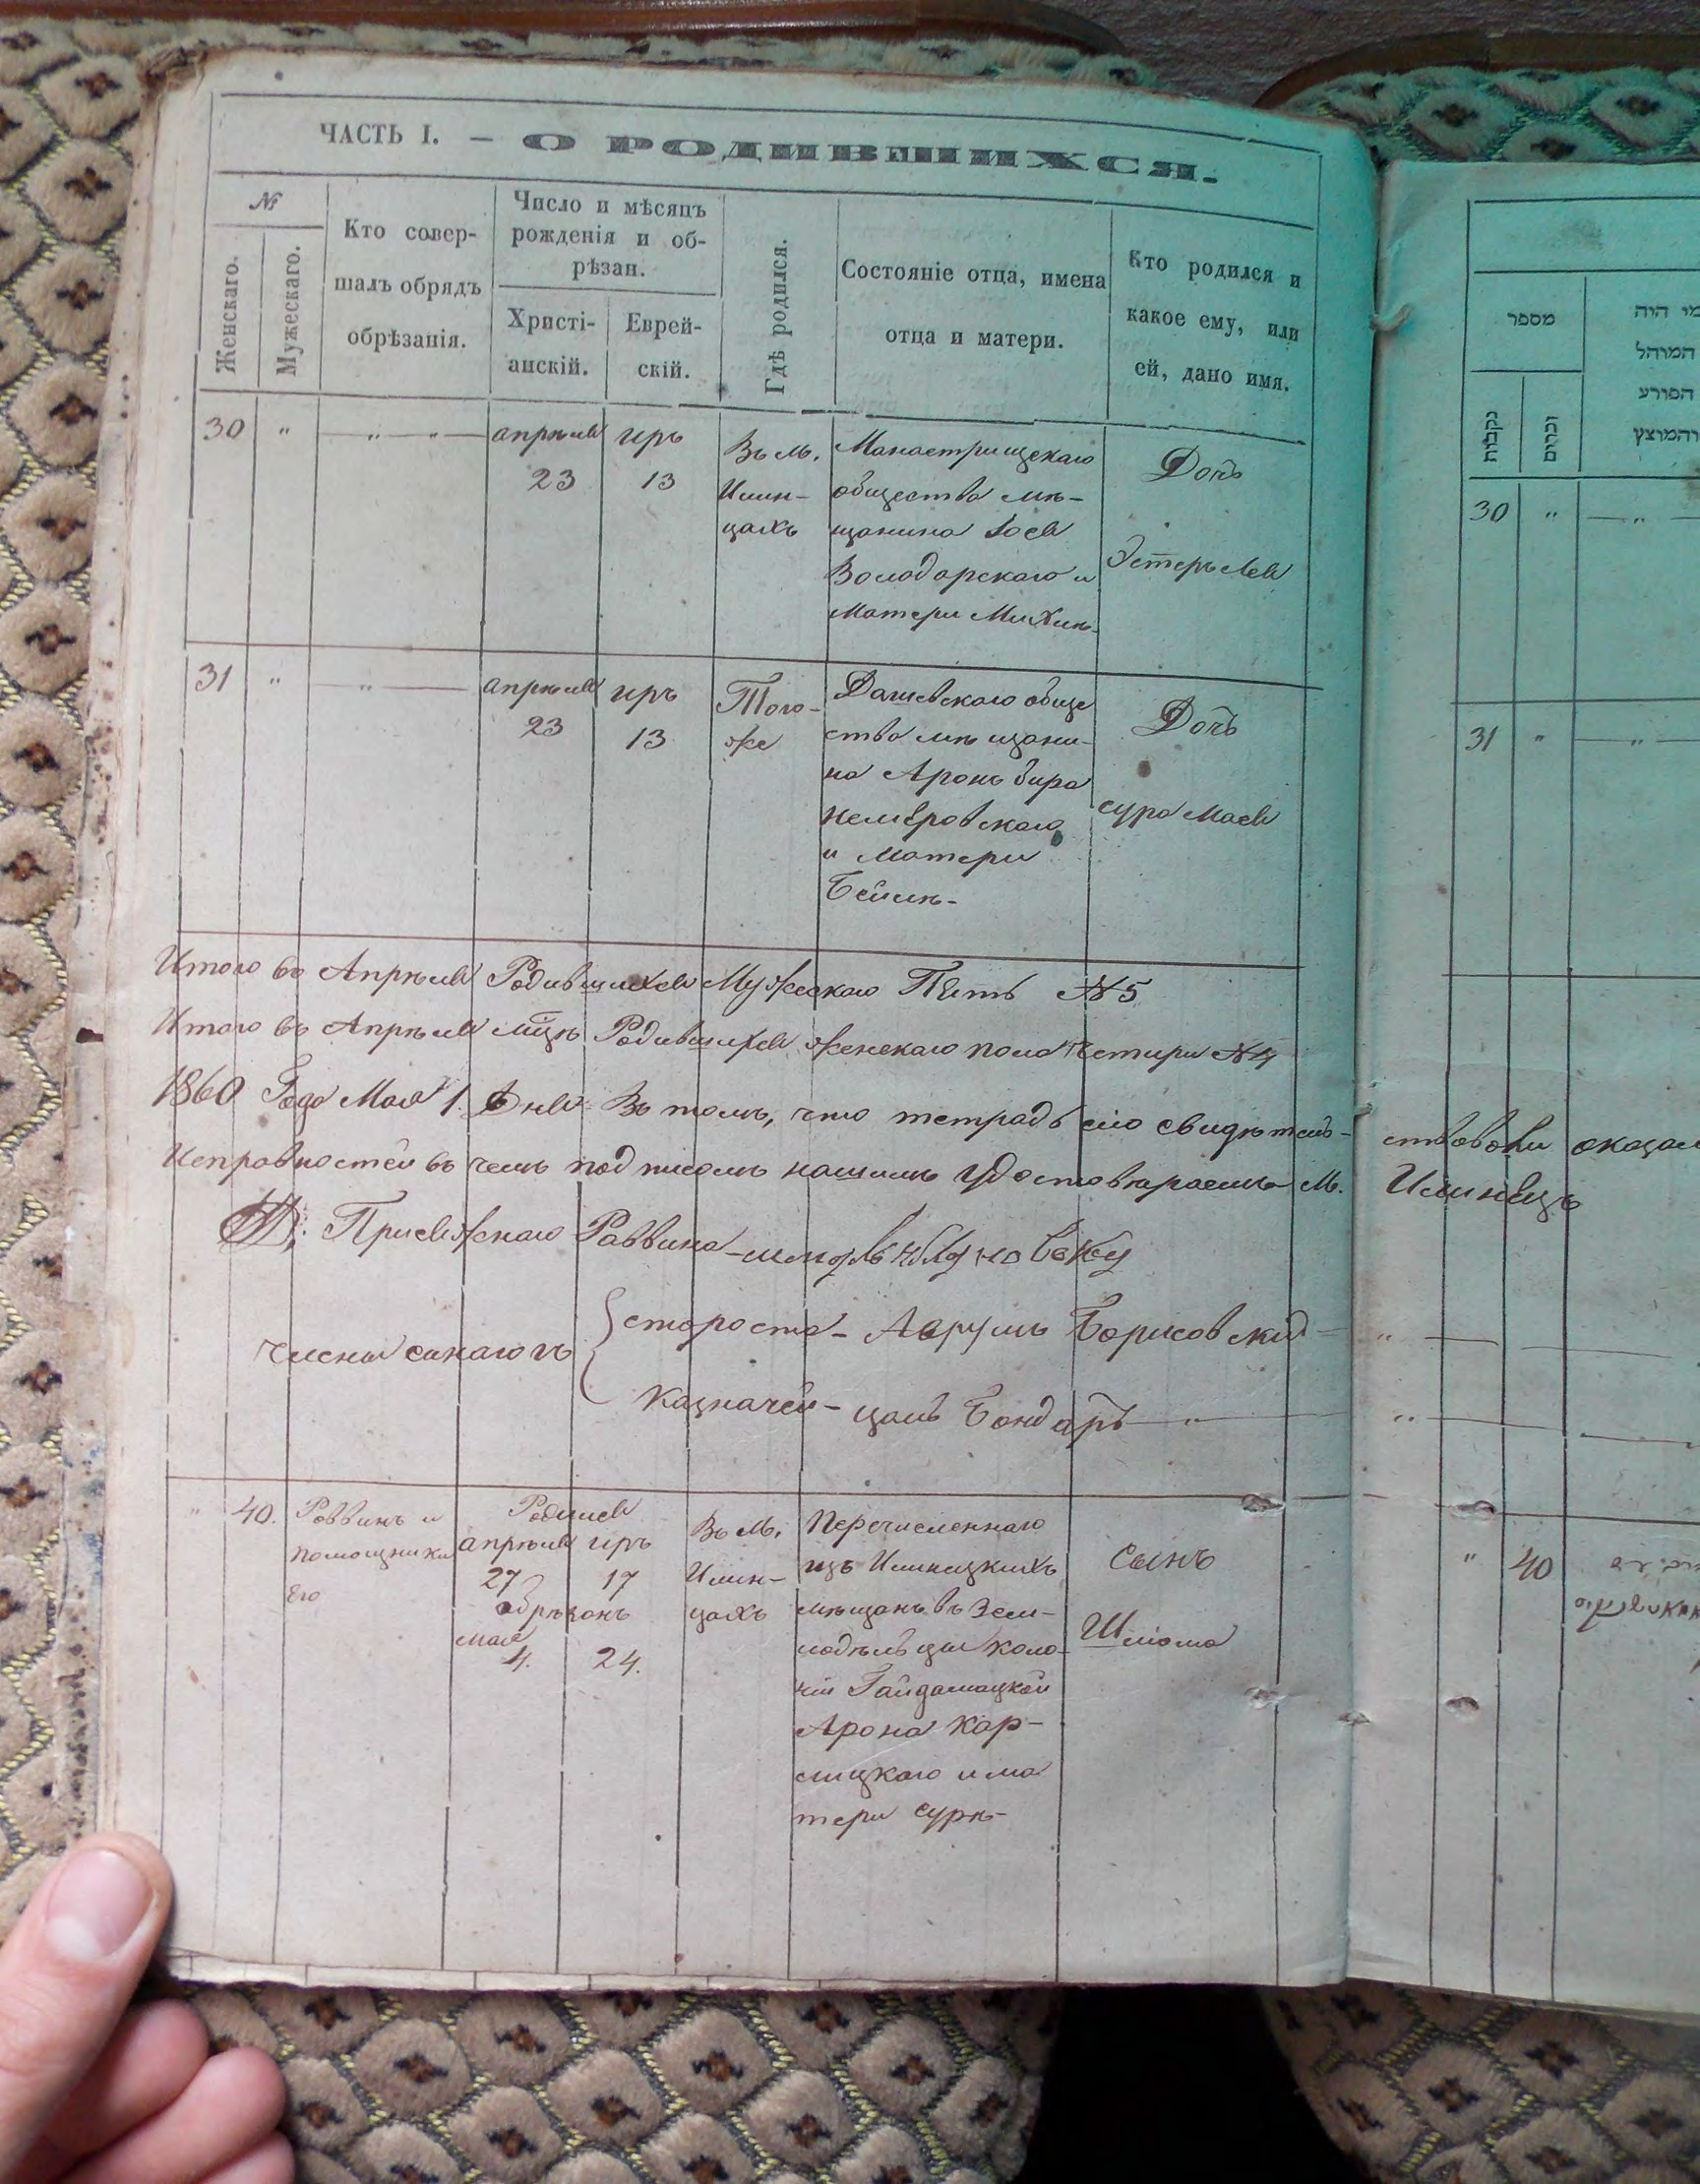 ЧАСТЬ I. — О РОДИВШИХСЯ.
№
Женскаго.
Мужескаго.
Кто совер-
шалъ обрядъ
обрѣзанія.
Число и мѣсяцъ
рожденія и об-
рѣзан.
Христі-
анскій.
Еврей-
скій.
Гдѣ родился.
Состояніе отца, имена
отца и матери.
Кто родился и
какое ему, или
ей, дано имя.
30 " — " — " —
апрѣля
23
иръ
13
Въ м.
Илин-
цахъ
Манастрищскаго
общества мѣ-
щанина
Володарскаго и
матери
Дочь
Эстеръ Лея
31 " — " —
апрѣля
23
иръ
13
Того-
же
Дашевскаго обще
ства мѣщани-
на Аронъ
Немеровскаго
и матери
Бейлѣ-
Дочь
сура
Итого въ Апрѣля Родившихся Мужескаго Петь №5
Итого въ Апрѣля мцѣ Родившихся женскаго пола Четыри №4
1860 Года Мая 1. Дня Въ томъ, что тетрадь сію свидѣтель-
ствовали
Исправностей въ чемъ подписомъ нашимъ удостовѣраемъ М. Илинецъ
Присяжнаго Раввина
члены синагогъ
староста - Аврумъ Борисовскій
казначей - цаль Бондарь — " —
" 40.
Раввинъ и
помощники
его
Родился
апрѣля иръ
27 17
обрѣзанъ
мая
4. 24.
Въ м.
Илин-
цахъ
Перечисленнаго
изъ Илинецкихъ
мѣщанъ въ Зем-
ледѣльцы коло-
ніи Гайдамацкой
Арона Кар-
лицкаго и ма
тери сурѣ-
Сынъ
Шліома
מספר
נקבות
זכרים
מי היה
המוהל
הפורע
והמוצץ
30 " — " —
31 " — " —
" 40